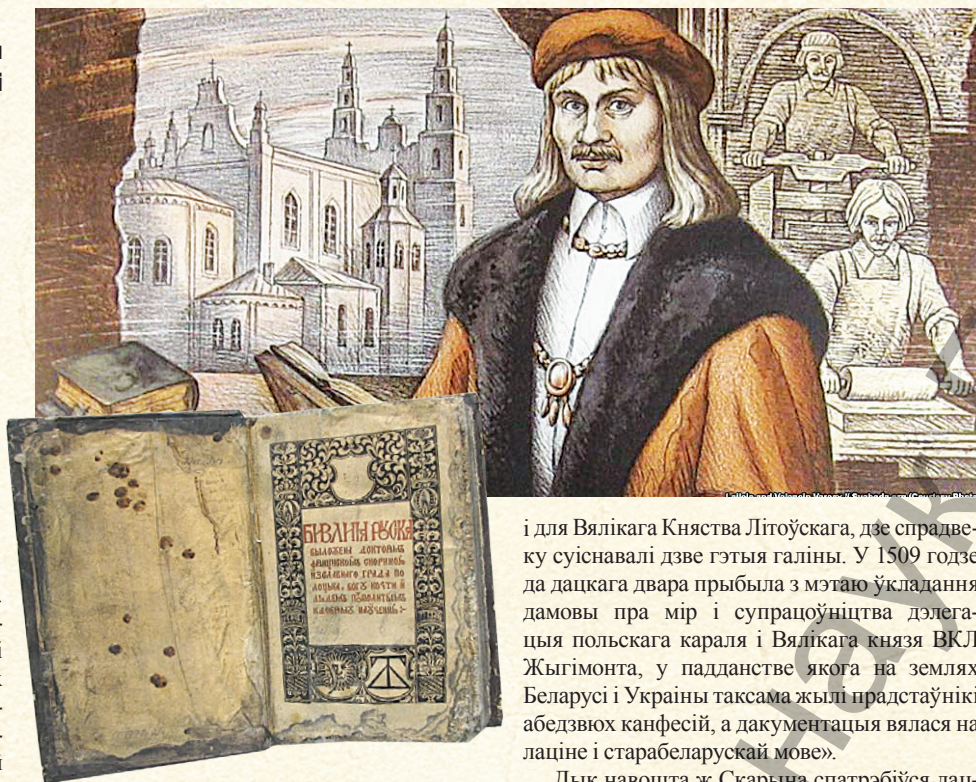 БИВЛИЯ РУСКА
ВЫЛОЖЕНА ДОКТОРОМЪ
і для Вялікага Княства Літоўскага, дзе спрадве-
ку суіснавалі дзве гэтыя галіны. У 1509 годзе
да дацкага двара прыбыла з мэтаю ўкладання
дамовы пра мір і супрацоўніцтва дэлега-
цыя польскага караля і Вялікага князя ВКЛ
Жыгімонта, у падданстве якога на землях
Беларусі і Украіны таксама жылі прадстаўнікі
абедзвюх канфесій, а дакументацыя вялася на
лаціне і старабеларускай мове».
Дык навошта ж Скарына спатрэбіўся дац-